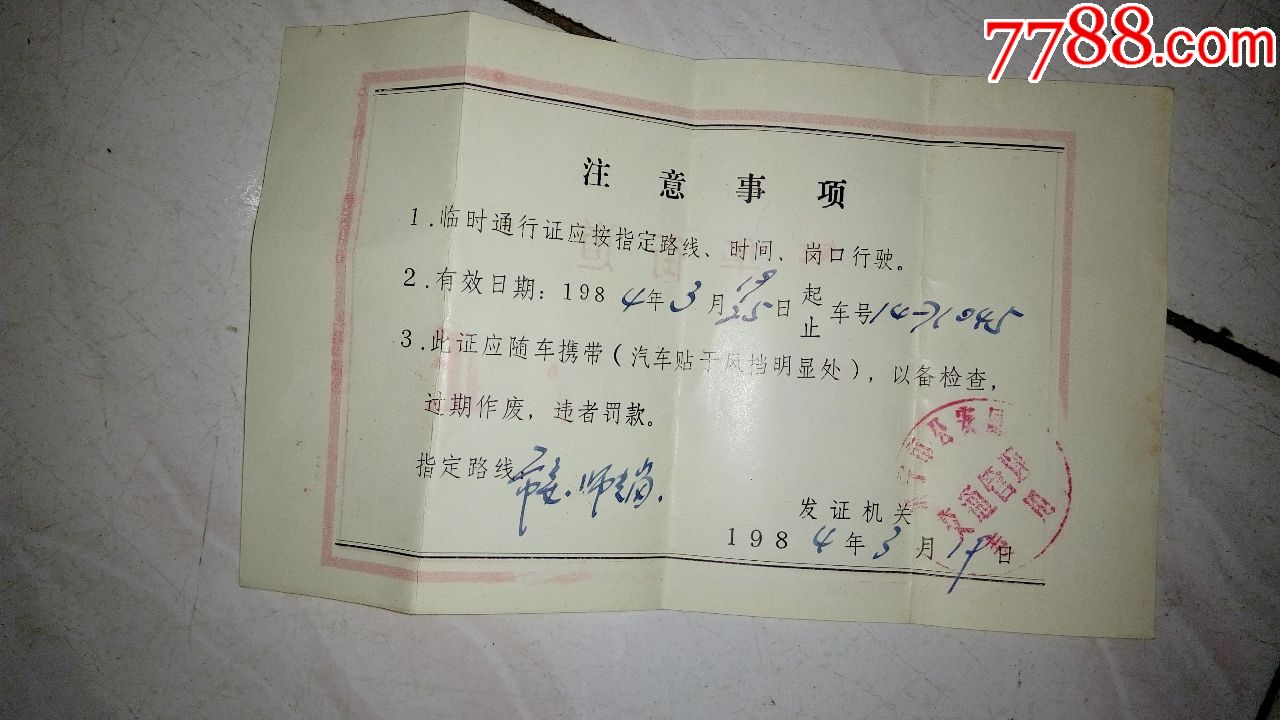 7788.com
注意事项
1.临时通行证应按指定路线、时间、岗口行驶。
2.有效日期：1984年3月19日起 25日止 车号14-71045
3.此证应随车携带（汽车贴于风挡明显处），以备检查，
过期作废，违者罚款。
指定路线
发证机关
1984年3月19日
市公安局
交通管理
专用